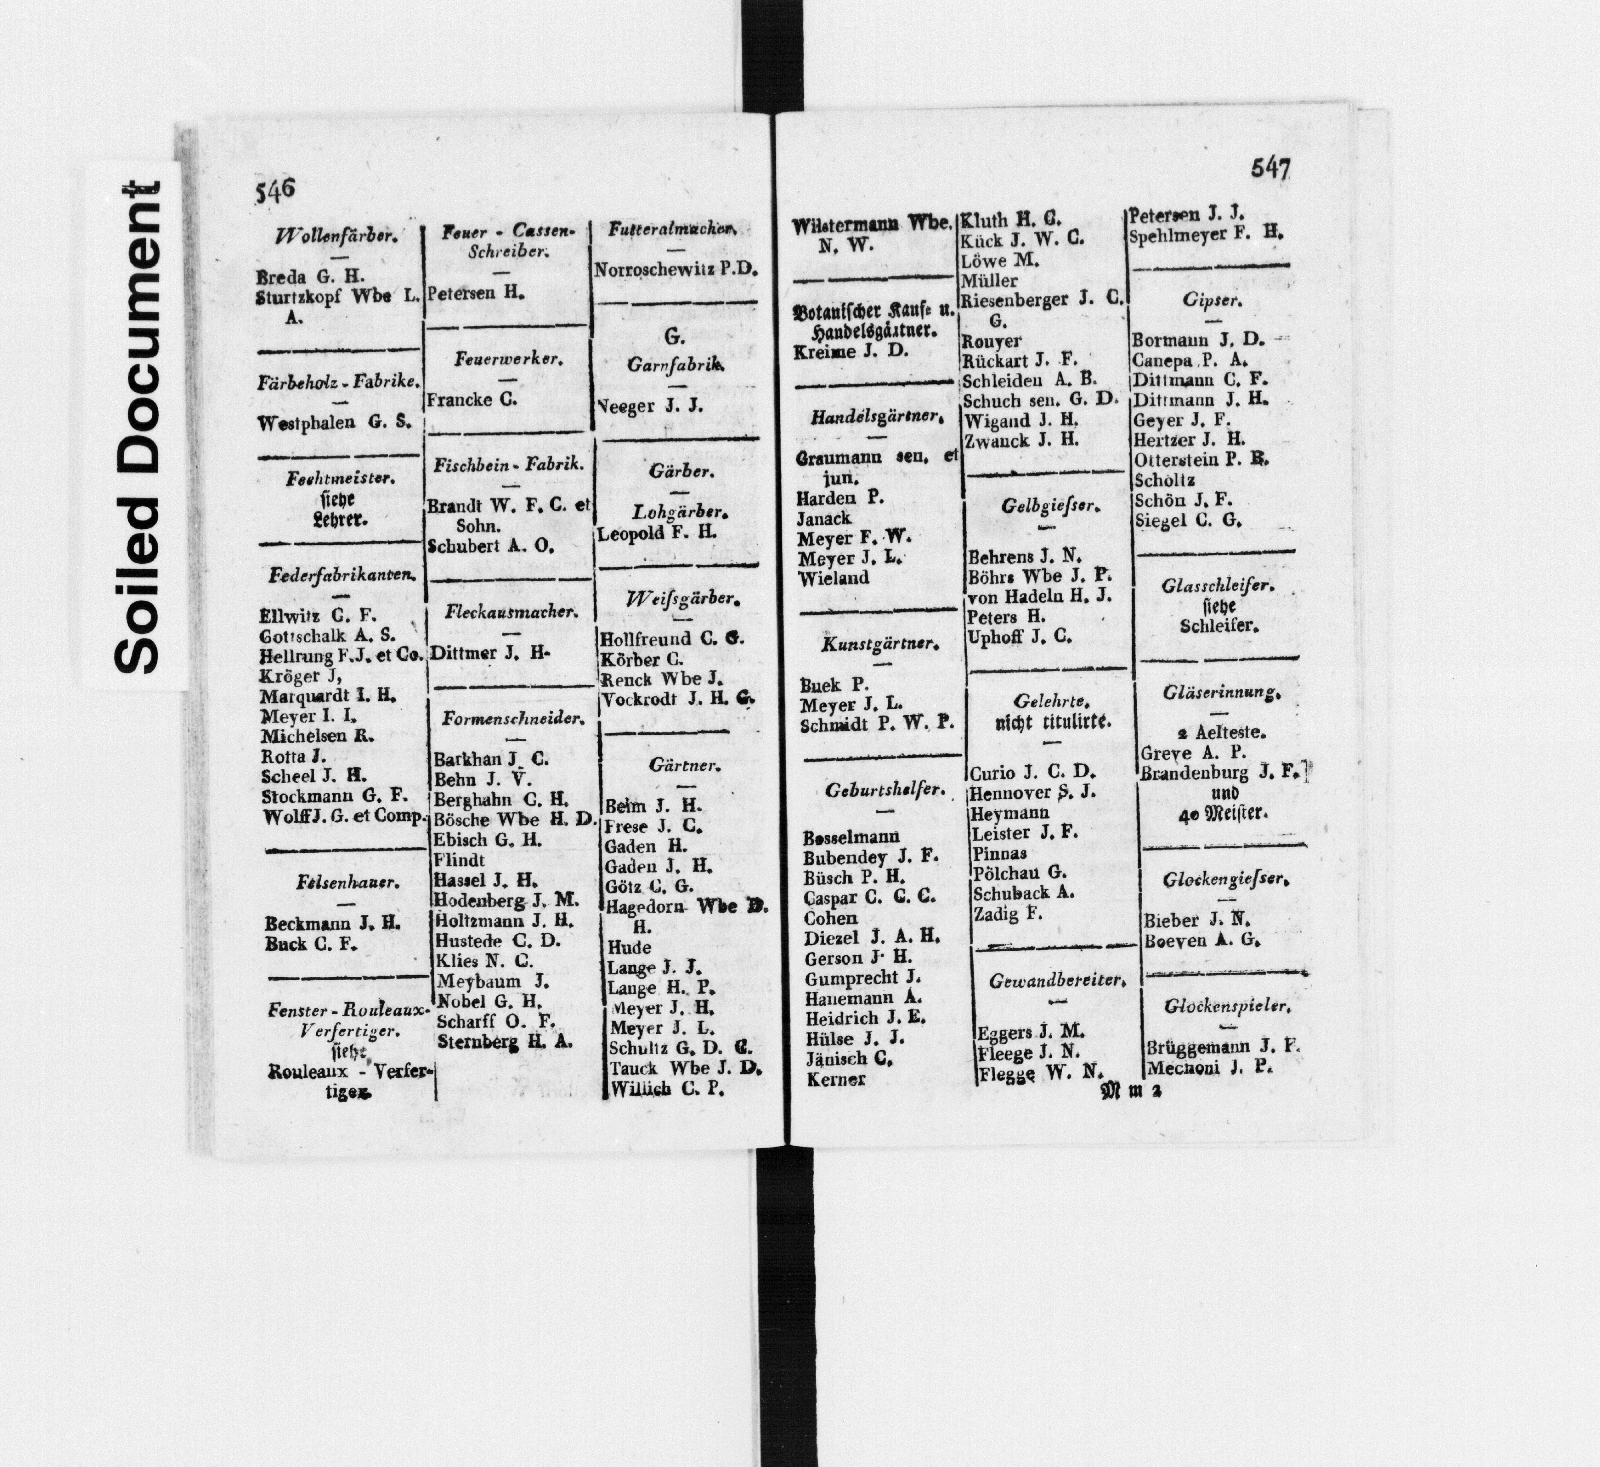 Soiled Document
546
Wollenfärber.
Breda G. H.
Sturtzkopf Wbe L.
A.
Färbeholz-Fabrike.
Westphalen G. S.
Fechtmeister.
siehe
Lehrer.
Federfabrikanten.
Ellwitz C. F.
Gottschalk A. S.
Hellrung F. J. et Co.
Kröger J,
Marquardt I. H.
Meyer I. I.
Michelsen R.
Rotta J.
Scheel J. H.
Stockmann G. F.
Wolff J. G. et Comp.
Felsenhauer.
Beckmann J. H.
Buck C. F.
Fenster-Rouleaux-
Verfertiger.
siehe
Rouleaux - Verfer-
tiger.
Feuer - Cassen-
Schreiber.
Petersen H.
Feuerwerker.
Francke C.
Fischbein-Fabrik.
Brandt W. F. C. et
Sohn.
Schubert A. O.
Fleckausmacher.
Dittmer J. H.
Formenschneider.
Barkhan J. C.
Behn J. V.
Berghahn C. H.
Bösche Wbe H. D.
Ebisch G. H.
Flindt
Hassel J. H.
Hodenberg J. M.
Holtzmann J. H.
Hustede C. D.
Klies N. C.
Meybaum J.
Nobel G. H.
Scharff O. F.
Sternberg H. A.
Futteralmacher.
Norroschewitz P. D.
G.
Garnfabrik.
Neeger J. J.
Gärber.
Lohgärber.
Leopold F. H.
Weifsgärber.
Hollfreund C. G.
Körber C.
Renck Wbe J.
Vockrodt J. H. G.
Gärtner.
Beim J. H.
Frese J. C.
Gaden H.
Gaden J. H.
Götz C. G.
Hagedorn Wbe D.
H.
Hude
Lange J. J.
Lange H. P.
Meyer J. H.
Meyer J. L.
Schultz G. D. C.
Tauck Wbe J. D.
Willich C. P.
547
Wilstermann Wbe.
N. W.
Botanischer Kauf= u.
Handelsgärtner.
Kreime J. D.
Handelsgärtner.
Graumann sen. et
jun.
Harden P.
Janack
Meyer F. W.
Meyer J. L.
Wieland
Kunstgärtner.
Buek P.
Meyer J. L.
Schmidt P. W. P.
Geburtshelfer.
Bosselmann
Bubendey J. F.
Büsch P. H.
Caspar C. G. C.
Cohen
Diezel J. A. H.
Gerson J. H.
Gumprecht J.
Hanemann A.
Heidrich J. E.
Hülse J. J.
Jänisch C.
Kerner
Kluth H. C.
Kück J. W. C.
Löwe M.
Müller
Riesenberger J. C.
G.
Rouyer
Rückart J. F.
Schleiden A. B.
Schuch sen. G. D.
Wigand J. H.
Zwanck J. H.
Gelbgiefser.
Behrens J. N.
Böhrs Wbe J. P.
von Hadeln H. J.
Peters H.
Uphoff J. C.
Gelehrte.
nicht titulirte.
Curio J. C. D.
Hennover S. J.
Heymann
Leister J. F.
Pinnas
Pölchau G.
Schuback A.
Zadig F.
Gewandbereiter.
Eggers J. M.
Fleege J. N.
Flegge W. N.
Petersen J. J.
Spehlmeyer F. H.
Gipser.
Bormann J. D.
Canepa P. A.
Dittmann C. F.
Dittmann J. H.
Geyer J. F.
Hertzer J. H.
Otterstein P. B.
Scholtz
Schön J. F.
Siegel C. G.
Glasschleifer.
siehe
Schleifer.
Gläserinnung.
2 Aelteste.
Greve A. P.
Brandenburg J. F.
und
40 Meister.
Glockengiefser.
Bieber J. N.
Boeven A. G.
Glockenspieler.
Brüggemann J. F.
Mechoni J. P.
M m 2